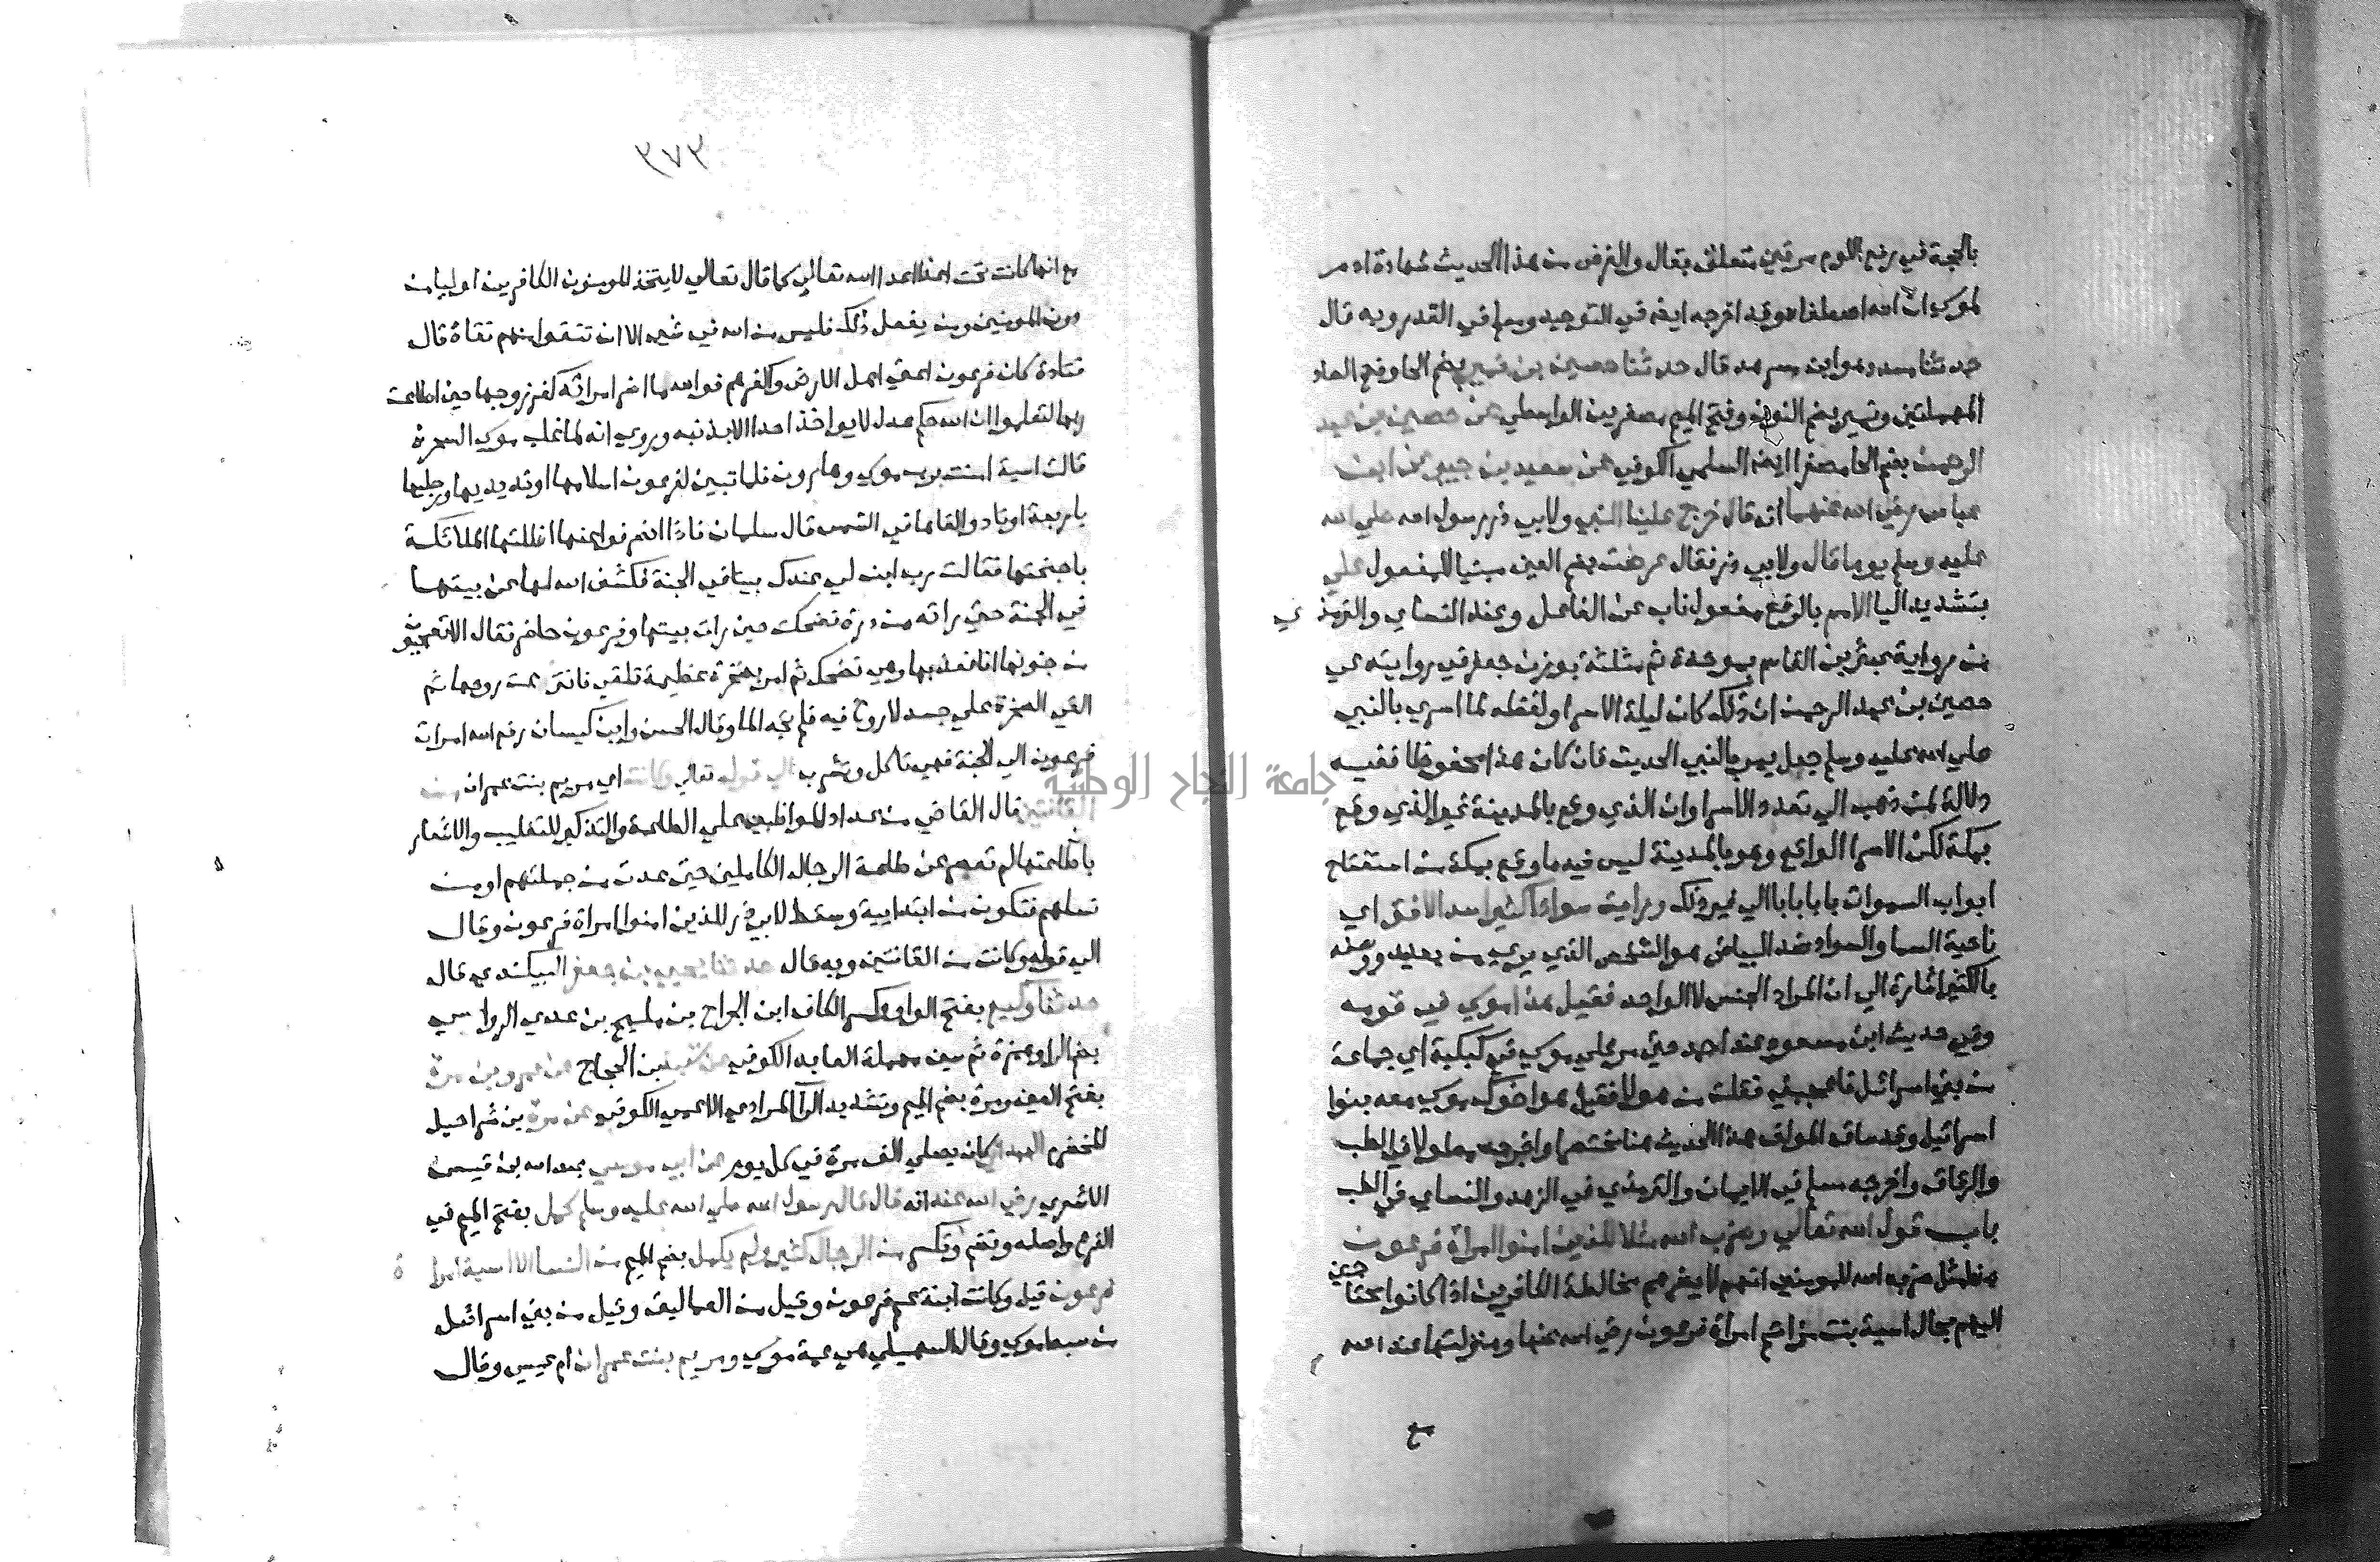 بالحجة في رفع اللوم مرتين متعلق بقال والغرض من هذا الحديث شهادة ادمر
لموسي ان الله اصطفاه وقد اخرجه ايضا في التوحيد ومسلم في القدر وبه قال
حدثنا مسدد هو ابن مسرهد قال حدثنا حصين بن نمير بضم الحا وفتح الصاد
المهملتين ونمير بضم النون وفتح الميم مصغرين الواسطي عن حصين بن عبد
الرحمن بضم الحا مصغرا ايضا السلمي الكوفي عن سعيد بن جبير عن ابن
عباس رضي الله عنهما انه قال خرج علينا النبي ولابي ذر رسول الله صلي الله
عليه وسلم يوما قال ولابي ذر فقال عرضت بضم العين مبنيا للمفعول علي
بتشديد اليا الامم بالرفع مفعول ناب عن الفاعل وعند النساي والترمذي
من رواية عبثر بن القاسم بموحدة ثم مثلثة بوزن جعفر في روايته عن
حصين بن عبد الرحمن ان ذلك كان ليلة الاسرا ولفظه لما اسري بالنبي
صلي الله عليه وسلم جعل يمر بالنبي الحديث فان كان هذا محفوظا ففيه
دلالة لمن ذهب الي تعدد الاسرا وان الذي وقع بالمدينة غير الذي وقع
بمكة لكن الاسرا الواقع وهو بالمدينة ليس فيه ما وقع بمكة من استفتاح
ابواب السموات بابا بابا الي غير ذلك ورايت سوادا كثيرا سد الافق اي
ناحية السما والسواد ضد البياض هو الشخص الذي يري من بعيد ووصفه
بالكثير اشارة الي ان المراد الجنس لا الواحد فقيل هذا موسي في قومه
وفي حديث ابن مسعود عند احمد حتي مر علي موسي في كبكبة اي جماعة
من بني اسرائيل فاعجبني فقلت من هولا فقيل هو اخوك موسي معه بنوا
اسرائيل وقد ساق المولف هذا الحديث هنا مختصرا واخرجه مطولا في الطب
والرقاق واخرجه مسلم في الايمان والترمذي في الزهد والنساي في الطب
باب قول الله تعالي وضرب الله مثلا للذين امنوا امراة فرعون
هذا مثل ضربه الله للمومنين انهم لا يضرهم مخالطة الكافرين اذا كانوا محتاجين
اليهم بحال اسية بنت مزاحم امراة فرعون رضي الله عنها ومنزلتها عند الله
مع
٣٧٣
مع انها كانت تحت اعدا اعدا الله تعالي كما قال تعالي لا يتخذ المومنون الكافرين اوليا من
دون المومنين ومن يفعل ذلك فليس من الله في شي الا ان تتقوا منهم تقاة قال
قتادة كان فرعون اعتي اهل الارض واكفرهم فوالله ما ضر امراته كفر زوجها حين اطاعت
ربها لتعلموا ان الله حكم عدل لا يواخذ احدا الا بذنبه وروي انه لما غلب موسي السحرة
قالت اسية امنت برب موسي وهارون فلما تبين لفرعون اسلامها اوتد يديها ورجليها
باربعة اوتاد والقاها في الشمس قال سلمان فاذا انصرفوا عنها اظلتها الملائكة
باجنحتها فقالت رب ابن لي عندك بيتا في الجنة فكشف الله لها عن بيتها
في الجنة حتي راته من درة فضحكت حين رات بيتها وفرعون حاضر فقال الا تعجبون
من جنونها انا نعذبها وهي تضحك ثم امر بصخرة عظيمة تلقي فانتزعت روحها ثم
القي الصخرة علي جسد لا روح فيه فلم تجد الما وقال الحسن وابن كيسان رفع الله امرات
فرعون الي الجنة فهي تاكل وتشرب الي قوله تعالي وكانت اي مريم بنت عمران من
القانتين قال القاضي من عداد المواظبين علي الطاعة والتذكير للتغليب والاشعار
بان طاعتها لم تقصر عن طاعة الرجال الكاملين حتي عدت من جملتهم او من
نسلهم فتكون من ابتدايية وسقط لابي ذر للذين امنوا امراة فرعون وقال
الي قوله وكانت من القانتين وبه قال حدثنا يحيي بن جعفر البيكندي قال
حدثنا وكيع بفتح الواو وكسر الكاف ابن الجراح بن مليح بن عدي الرواسي
بضم الرا وهمزة ثم سين مهملة العابد الكوفي عن شعبة بن الحجاج عن عمرو بن مرة
بفتح العين ومرة بضم الميم وتشديد الرا المرادي الاعمي الكوفي عن مرة بن شراحيل
المخضرم الهمداني كان يصلي الف مرة في كل يوم عن ابي موسي عبد الله بن قيس
الاشعري رضي الله عنه انه قال قال رسول الله صلي الله عليه وسلم كمل بفتح الميم في
الفرع واصله وتضم وتكسر من الرجال كثير ولم يكمل بضم الميم من النسا الا اسية امراة
فرعون قيل وكانت ابنة عم فرعون وقيل من العماليق وقيل من بني اسرائيل
من سبط موسي وقال السهيلي هي عمة موسي ومريم بنت عمران ام عيسي وقال
جامعة النجاح الوطنية